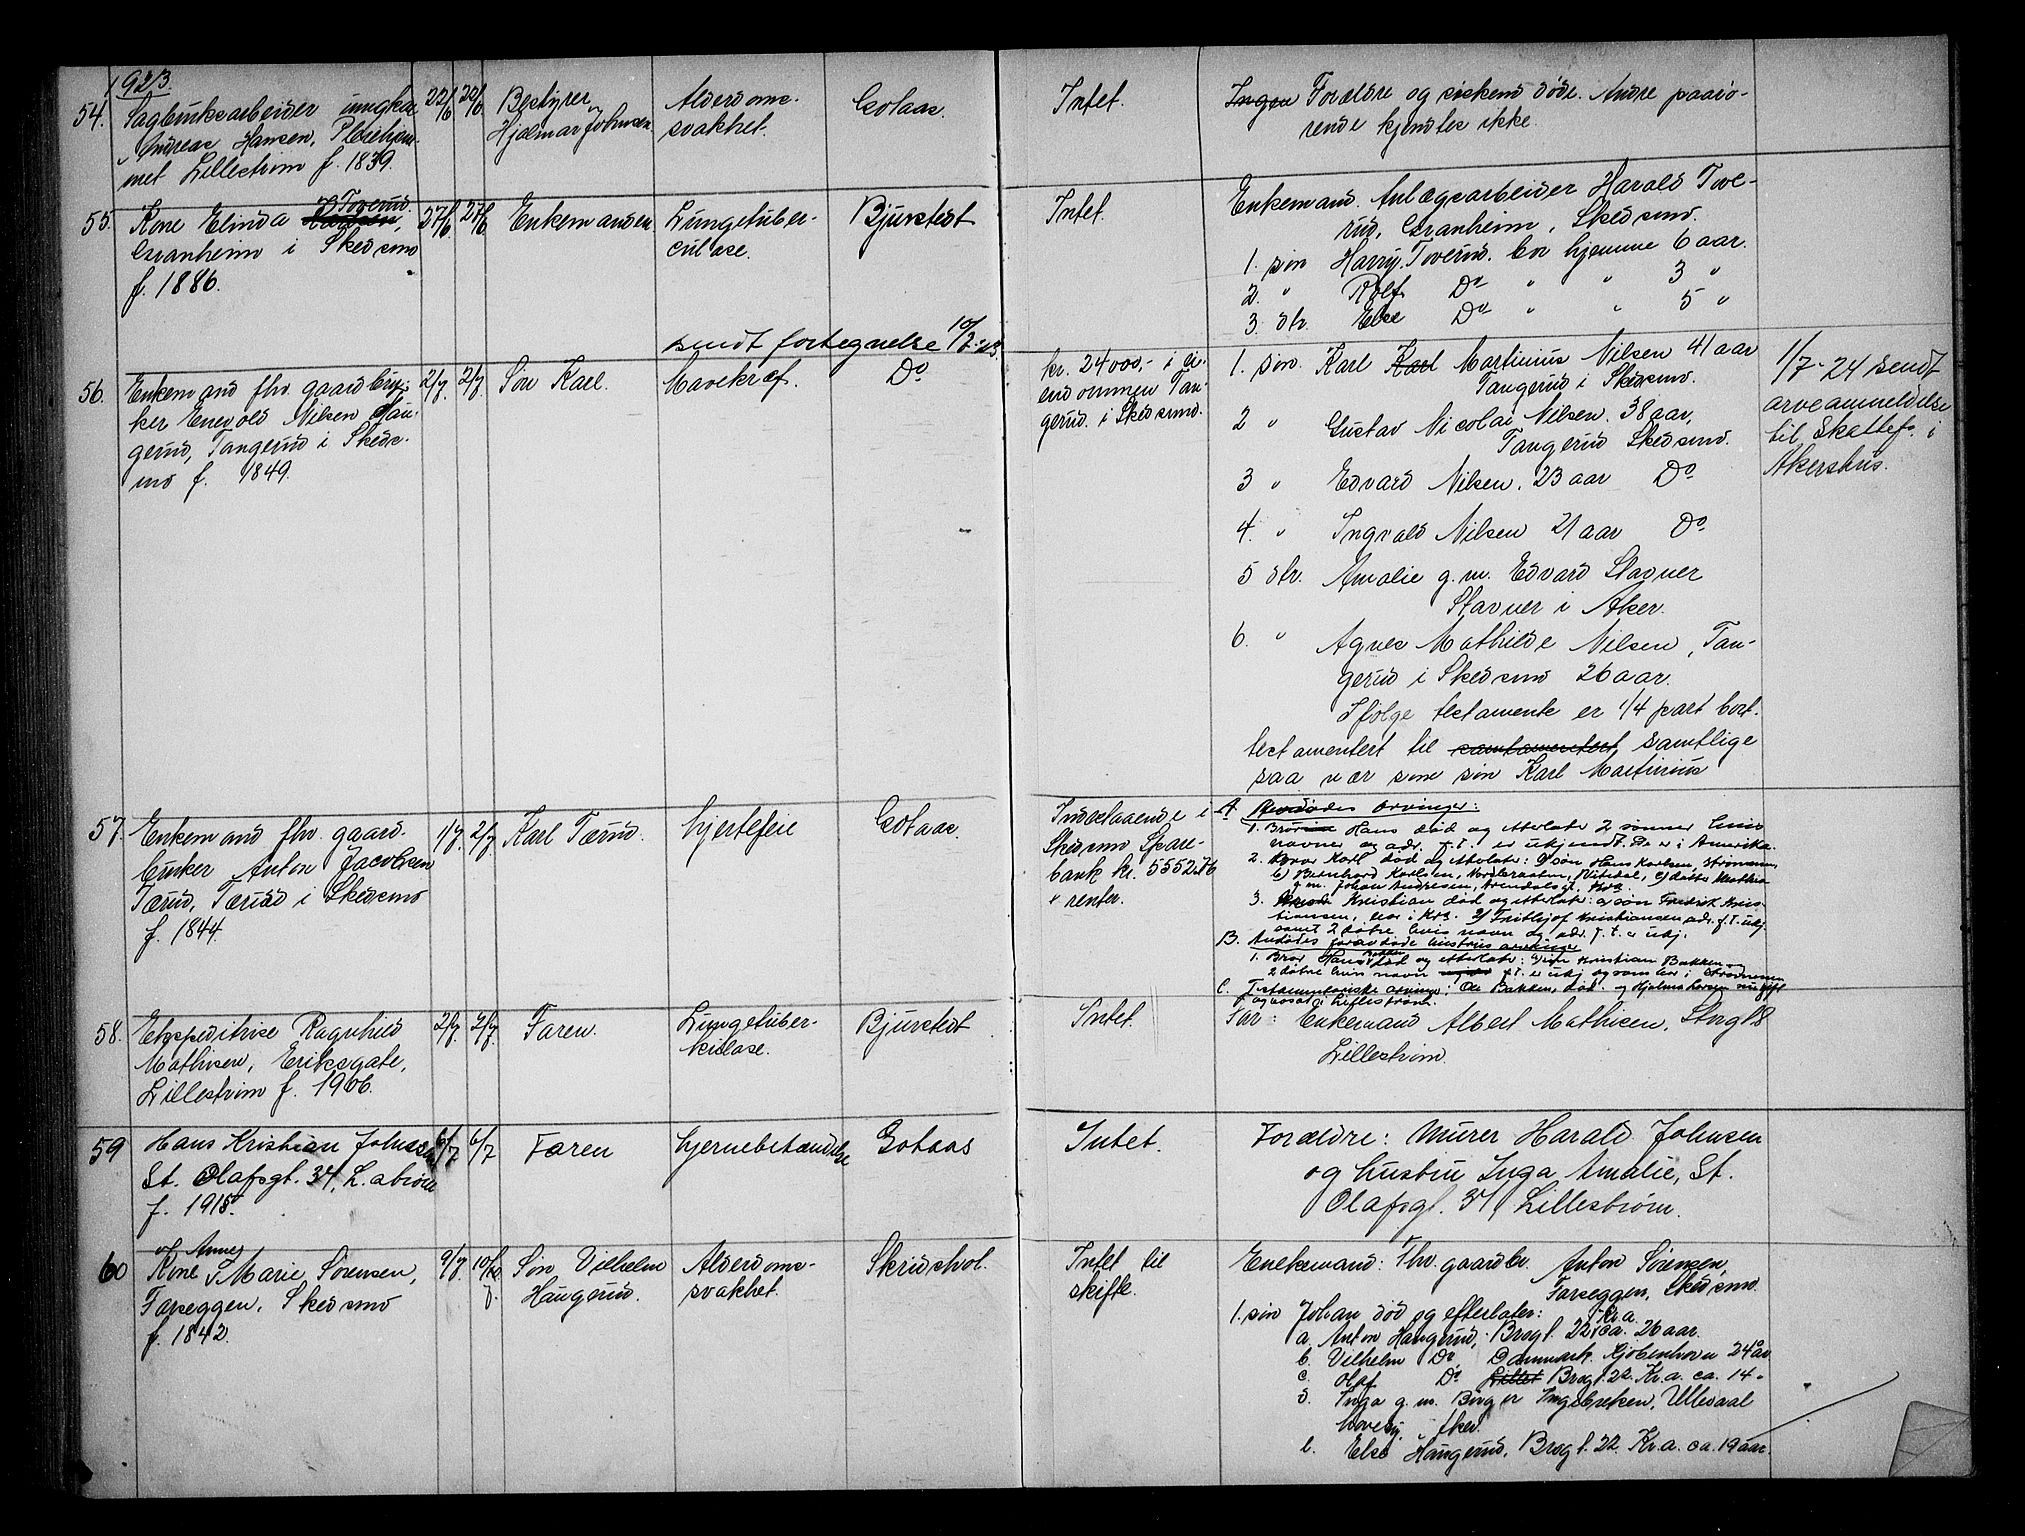 1923.
54. Sagbruksarbeider ungkar
Andreas Hansen, Pleiehjem-
met Lillestrøm f. 1839.
22/6 22/6
Bestyrer
Hjalmar Johnsen
Alderdoms-
svakhet.
Gotaas.
Intet.
Ingen Forældre og søsken døde. Andre paarø-
rende kjendtes ikke.
55. Kone Elinda Toverud,
Granheim i Skedsmo
f. 1886.
27/6 27/6
Enkemanden
Lungetuber-
culose.
Bjurstedt
Intet.
Enkemand. Anlægsarbeider Harald Tove-
rud, Granheim, Skedsmo.
1. søn Harry Toverud. bor hjemme 6 aar.
2. " Rolf Do " " 3 "
3. dtr. Else Do " " 5 "
sendt fortegnelse 10/7-23
56. Enkemand fhv. gaardbru-
ker Enevold Nilsen Tan-
gerud, Tangerud i Skeds-
mo f. 1849.
2/7. 2/7.
Søn Karl.
Mavekræf.
Do
kr. 24000,- i ei-
endommen Tan-
gerud i Skedsmo.
1. søn Karl Karl Martinius Nilsen 41 aar
Tangerud i Skedsmo.
2 " Gustav Nicolai Nilsen. 38 aar,
Tangerud Skedsmo.
3 " Edvard Nilsen. 23 aar Do
4. " Ingvald Nilsen 21 aar Do
5 dtr. Amalie g.m. Edvard Stavner
Stavner i Aker.
6. " Agnes Mathilde Nilsen, Tan-
gerud i Skedsmo 26 aar.
Ifølge testamente er 1/4 part bort-
testamentert til samtlige
saa nær som søn Karl Martinius
1/7-24 sendt
arveanmeldelse
til Skattef. i
Akershus.
57. Enkemand fhv. gaard-
bruker Anton Jacobsen
Tærud, Tærud i Skedsmo
f. 1844.
1/7. 2/7
Karl Tærud.
hjertefeil
Gotaas.
Indestaaende i
Skedsmo Spare-
bank kr. 5552.76
+ renter.
A. Avdødes arvinger:
1. Bror Hans død og etterlater 2 sønner hvis
navne og adr. f.t. er ukjendt. De er i Amerika.
2. Bror Karl død og etterlater: a) søn Hans Karlsen, Strømmen,
b) Bernhard Karlsen, Nordbraaten, Nitedal, c) datter Mathia
g.m. Johan Andresen, Arendalsgt. Kra.
3. Kristian død og etterlater: a) søn Fredrik Kris-
tiansen, bor i Kra. 2) Frithjof Kristiansen adr. f.t. ukj.
samt 2 døtre hvis navn og adr. f.t. er ukj.
B. Avdødes forav døde hustrus arvinger
1. Bror Hans Bakken død og etterlater: søn Kristian Bakken og
2 døtre hvis navn f.t. er ukj og som bor i Strømmen
C. Testamentariske arvinger: Ole Bakken, død. og Hjalmar Larsen ugift
og bosat i Lillestrøm.
58. Ekspeditrise Ragnhild
Mathisen, Eriksgate,
Lillestrøm f. 1906.
2/7. 2/7.
Faren.
Lungetuber-
kulose.
Bjurstedt
Intet.
Far: Enkemand Albert Mathisen, Storgt 8
Lillestrøm.
59 Hans Kristian Johnsen
St. Olafsgt. 34, L.strøm
f. 1918.
6/7 6/7
Faren
hjernebetændelse
Gotaas
Intet.
Forældre: Murer Harald Johnsen
og hustru Inga Amalie, St.
Olafsgt. 34, Lillestrøm.
60 Kone Anne
Marie Sørensen,
Farseggen, Skedsmo
f. 1842.
9/7. 10/7.
Søn Vilhelm
Haugerud.
Alderdoms-
svakhet.
Skridshol.
Intet til
skifte.
Enkemand: Fhv. gaardbr. Anton Sørensen,
Farseggen, Skedsmo.
1. søn Johan død og efterlater:
a. Anton Haugerud, Brogt. 22, Kr.a. ca. 26 aar.
b. Vilhelm Do Danmark. Kjøbenhavn 24 år
c. Olaf Do Brogt. 22. Kr.a. ca. 14 "
d. Inga g.m. Birger Ingebretsen, Ullevaal
haveby, i Aker.
e. Else Haugerud, Brogt. 22. Kr.a. ca. 19 aar.